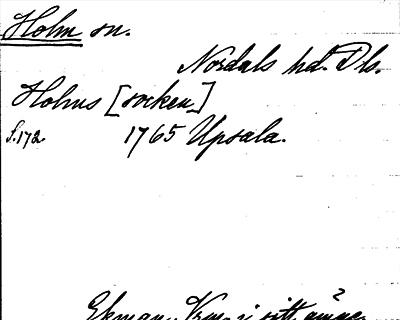 Holm sn.
Nordals hd. Dls.
Holms [socken]
S. 172 1765 Upsala.
Ekman, Verml. i sitt ämne